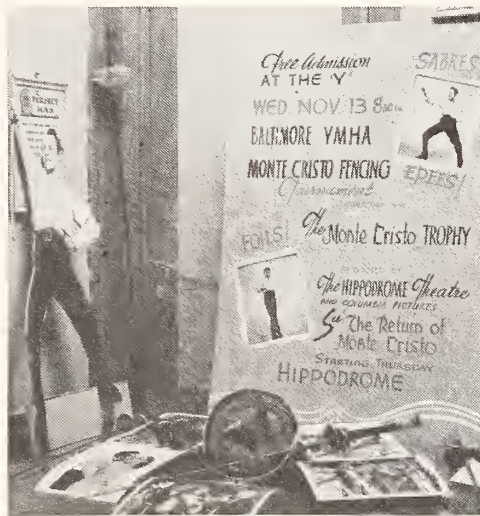 PERFECT
MAN
Free Admission
AT THE 'Y'
WED. NOV. 13 8:30 P.M.
BALTIMORE YMHA
MONTE CRISTO FENCING
Tournament
SABRES!
EPEES!
FOILS!
The Monte Cristo TROPHY
The HIPPODROME Theatre
AND COLUMBIA PICTURES
See The Return of
Monte Cristo
STARTING THURSDAY
HIPPODROME